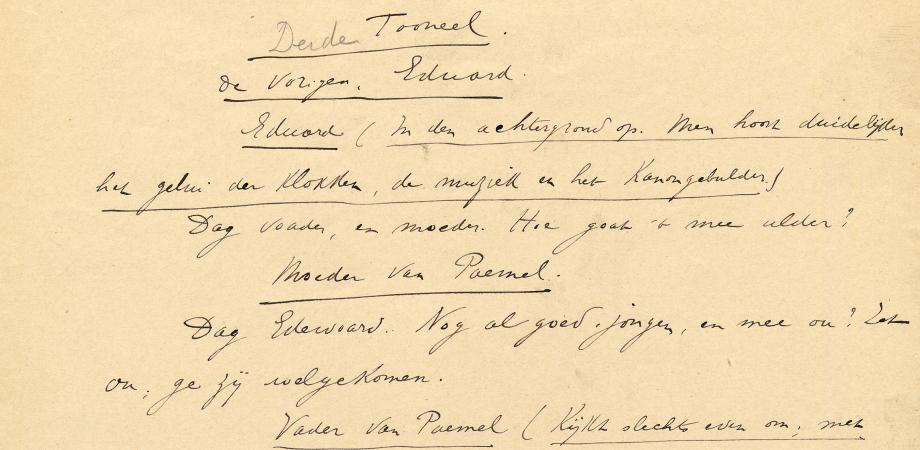 Derde Tooneel.
de Vorigen, Eduard.
Eduard (In den achtergrond op. Men hoort duidelijker
het gelui der klokken, de muziek en het Kanongebulder.)
Dag voader, en moeder. Hoe goat 't mee ulder?
Moeder Van Paemel.
Dag Edewoard. Nog al goed, jongen, en mee ou? Zet
ou, ge zij welgekomen.
Vader Van Paemel (Kijkt slechts even om, met